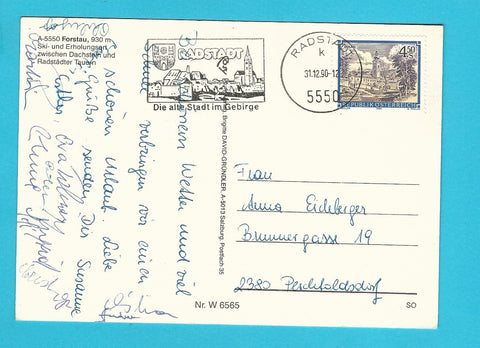 A-5550 Forstau, 930 m
Ski- und Erholungsort
zwischen Dachstein und
Radstädter Tauern
Bei schönem Wetter und viel
Schnee verbringen wir einen
schönen Urlaub. Liebe
Grüße senden Dir Susanne
RADSTADT
Die alte Stadt im Gebirge
RADSTADT
k
31.12.90-12
5550
4.50
REPUBLIK ÖSTERREICH
Brigitte DAVID-GRÜNDLER, A-5013 Salzburg, Postfach 35
Frau
Anna Eichberger
Brunnergasse 19
2380 Perchtoldsdorf
Nr. W 6565
SO